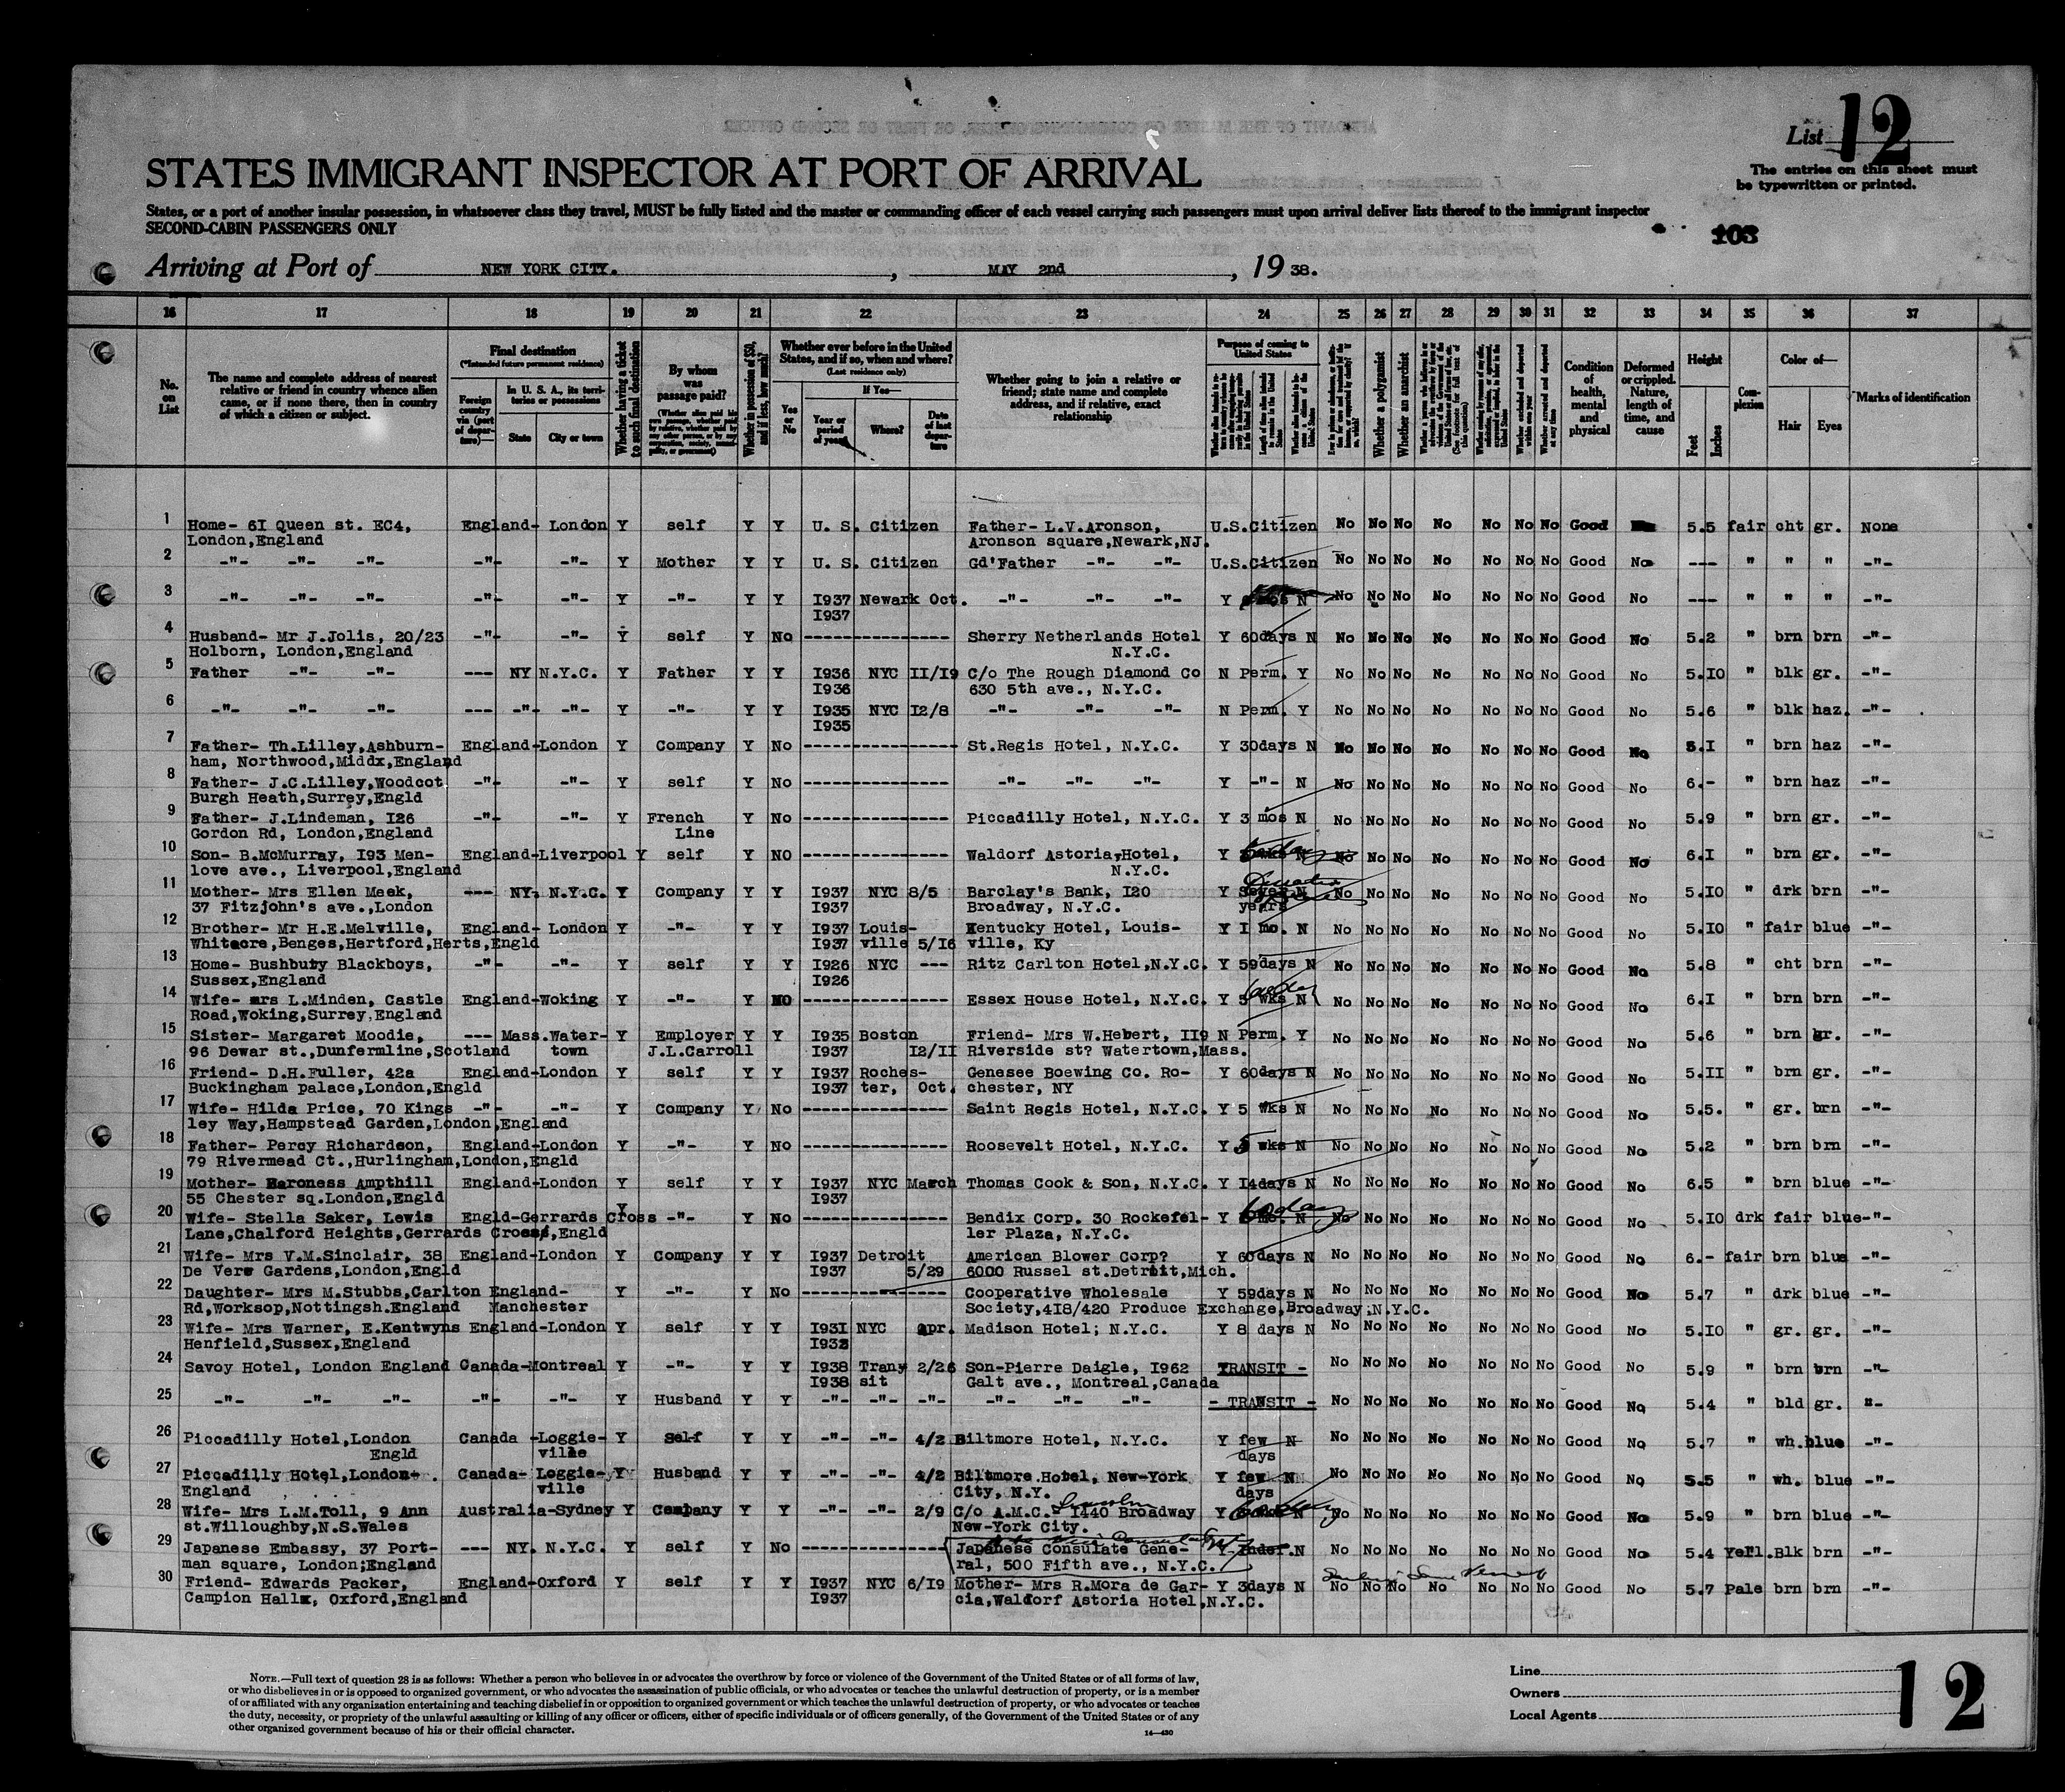 List 12
The entries on this sheet must
be typewritten or printed.
STATES IMMIGRANT INSPECTOR AT PORT OF ARRIVAL
States, or a port of another insular possession, in whatsoever class they travel, MUST be fully listed and the master or commanding officer of each vessel carrying such passengers must upon arrival deliver lists thereof to the immigrant inspector
SECOND-CABIN PASSENGERS ONLY
103
Arriving at Port of NEW YORK CITY. , MAY 2nd , 19 38.
16 17 18 19 20 21 22 23 24 25 26 27 28 29 30 31 32 33 34 35 36 37
No. on List
The name and complete address of nearest relative or friend in country whence alien came, or if none there, then in country of which a citizen or subject.
Final destination
(*Intended future permanent residence)
Foreign country via (port of departure)—
In U. S. A., its territories or possessions
State City or town
Whether having a ticket to such final destination
By whom was passage paid?
Whether in possession of $50, and if less, how much?
Whether ever before in the United States, and if so, when and where?
(Last residence only)
Yes or No
If Yes—
Year or period of years Where? Date of last departure
Whether going to join a relative or friend; state name and complete address, and if relative, exact relationship
Purpose of coming to United States
Whether a polygamist
Whether an anarchist
Condition of health, mental and physical
Deformed or crippled. Nature, length of time, and cause
Height
Feet Inches
Complexion
Color of—
Hair Eyes
Marks of identification
1 Home- 6I Queen st. EC4, England- London Y self Y Y U. S. Citizen Father- L.V.Aronson, U.S.Citizen No No No No No No No Good 5.5 fair cht gr. None
London,England Aronson square,Newark,NJ.
2 -"- -"- -"- -"- -"- Y Mother Y Y U. S. Citizen Gd'Father -"- -"- U.S.Citizen No No No No No No No Good No --- " " " -"-
3 -"- -"- -"- -"- -"- Y -"- Y Y I937 Newark Oct. -"- -"- -"- Y N No No No No No No No Good No --- " " " -"-
I937
4 Husband- Mr J.Jolis, 20/23 -"- -"- Y self Y No ---------------- Sherry Netherlands Hotel Y 60days N No No No No No No No Good No 5.2 " brn brn -"-
Holborn, London,England N.Y.C.
5 Father -"- -"- --- NY N.Y.C. Y Father Y Y I936 NYC II/I9 C/o The Rough Diamond Co N Perm. Y No No No No No No No Good No 5.I0 " blk gr. -"-
I936 630 5th ave., N.Y.C.
6 -"- -"- -"- --- -"- -"- Y -"- Y Y I935 NYC I2/8 -"- -"- -"- N Perm. Y No No No No No No No Good No 5.6 " blk haz. -"-
I935
7 Father- Th.Lilley,Ashburn- England-London Y Company Y No ---------------- St.Regis Hotel, N.Y.C. Y 30days N No No No No No No No Good No 5.I " brn haz -"-
ham, Northwood,Middx,England
8 Father- J.C.Lilley,Woodcot -"- -"- Y self Y No ---------------- -"- -"- -"- Y -"- N No No No No No No No Good No 6.- " brn haz -"-
Burgh Heath,Surrey,Engld
9 Father- J.Lindeman, I26 -"- -"- Y French Y No ---------------- Piccadilly Hotel, N.Y.C. Y 3 mos N No No No No No No No Good No 5.9 " brn gr. -"-
Gordon Rd, London,England Line
10 Son- B.McMurray, I93 Men- England-Liverpool Y self Y NO ---------------- Waldorf Astoria,Hotel, Y No No No No No No No Good No 6.I " brn gr. -"-
love ave., Liverpool,England N.Y.C.
11 Mother- Mrs Ellen Meek, --- NY. N.Y.C. Y Company Y Y I937 NYC 8/5 Barclay's Bank, I20 Y N No No No No No No No Good No 5.I0 " drk brn -"-
37 Fitzjohn's ave.,London I937 Broadway, N.Y.C. years
12 Brother- Mr H.E.Melville, England- London Y -"- Y Y I937 Louis- Kentucky Hotel, Louis- Y I mo. N No No No No No No No Good No 5.I0 " fair blue -"-
Whiteacre,Benges,Hertford,Herts,Engld I937 ville 5/I6 ville, Ky
13 Home- Bushbuty Blackboys, -"- -"- Y self Y Y I926 NYC --- Ritz Carlton Hotel,N.Y.C. Y 59days N No No No No No No No Good No 5.8 " cht brn -"-
Sussex,England I926
14 Wife- mrs L.Minden, Castle England-Woking Y -"- Y NO ---------------- Essex House Hotel, N.Y.C. Y 5 wks N No No No No No No No Good No 6.I " brn brn -"-
Road,Woking,Surrey,England
15 Sister- Margaret Moodie, --- Mass.Water- Y Employer Y Y I935 Boston Friend- Mrs W.Hebert, II9 N Perm. Y No No No No No No No Good No 5.6 " brn gr. -"-
96 Dewar st.,Dunfermline,Scotland town J.L.Carroll I937 I2/II Riverside st? Watertown,Mass.
16 Friend- D.H.Fuller, 42a England-London Y self Y Y I937 Roches- Genesee Boewing Co. Ro- Y 60days N No No No No No No No Good No 5.II " brn gr. -"-
Buckingham palace,London,Engld I937 ter, Oct. chester, NY
17 Wife- Hilda Price, 70 Kings -"- -"- Y Company Y No ---------------- Saint Regis Hotel, N.Y.C. Y 5 wks N No No No No No No No Good No 5.5. " gr. brn -"-
ley Way,Hampstead Garden,London,England
18 Father- Percy Richardson, England-London Y -"- Y No ---------------- Roosevelt Hotel, N.Y.C. Y 5 wks N No No No No No No No Good No 5.2 " brn brn -"-
79 Rivermead Ct.,Hurlingham,London,Engld
19 Mother- Baroness Ampthill England-London Y self Y Y I937 NYC March Thomas Cook & Son, N.Y.C. Y I4days N No No No No No No No Good No 6.5 " brn blue -"-
55 Chester sq.London,Engld I937
20 Wife- Stella Saker, Lewis Engld-Gerrards Cross Y -"- Y No ---------------- Bendix Corp. 30 Rockefel- Y 60 days N No No No No No No No Good No 5.I0 drk fair blue-"-
Lane,Chalford Heights,Gerrards Cross,Engld ler Plaza, N.Y.C.
21 Wife- Mrs V.M.Sinclair, 38 England-London Y Company Y Y I937 Detroit American Blower Corp? Y 60days N No No No No No No No Good No 6.- fair brn blue -"-
De Vere Gardens,London,Engld I937 5/29 6000 Russel st.Detroit,Mich.
22 Daughter- Mrs M.Stubbs,Carlton England- Y -"- Y No ---------------- Cooperative Wholesale Y 59days N No No No No No No No Good No 5.7 " drk blue -"-
Rd,Worksop,Nottingsh.England Manchester Society,4I8/420 Produce Exchange,Broadway,N.Y.C.
23 Wife- Mrs Warner, E.Kentwyns England-London Y self Y Y I93I NYC apr. Madison Hotel; N.Y.C. Y 8 days N No No No No No No No Good No 5.I0 " gr. gr. -"-
Henfield,Sussex,England I932
24 Savoy Hotel, London England Canada-Montreal Y -"- Y Y I938 Tran, 2/26 Son-Pierre Daigle, I962 TRANSIT - No No No No No No No Good No 5.9 " brn brn -"-
I938 sit Galt ave., Montreal,Canada
25 -"- -"- -"- -"- -"- Y Husband Y Y -"- -"- -"- -"- -"- -"- - TRANSIT - No No No No No No No Good No 5.4 " bld gr. "-
26 Piccadilly Hotel,London Canada -Loggie- Y Self Y Y -"- -"- 4/2 Biltmore Hotel, N.Y.C. Y few N No No No No No No No Good No 5.7 " wh.blue -"-
Engld ville days
27 Piccadilly Hotel,London Canada- Loggie- Y Husband Y Y -"- -"- 4/2 Biltmore.Hotel, New-York Y few N No No No No No No No Good No 5.5 " wh. blue -"-
England ville City, N.Y. days
28 Wife- Mrs L.M.Toll, 9 Ann Australia-Sydney Y Company Y Y -"- -"- 2/9 C/o A.M.C.- I440 Broadway Y N No No No No No No No Good No 5.9 " brn blue -"-
st.Willoughby,N.S.Wales New-York City.
29 Japanese Embassy, 37 Port- --- NY. N.Y.C. Y self Y No ---------------- Japanese Consulate Gene- Y N No No No No No No No Good No 5.4 Yell.Blk brn -"-
man square, London;England ral, 500 Fifth ave., N.Y.C.
30 Friend- Edwards Packer, England-Oxford Y self Y Y I937 NYC 6/I9 Mother- Mrs R.Mora de Gar- Y 3days N No No No No No No No Good No 5.7 Pale brn brn -"-
Campion Hall, Oxford,England I937 cia,Waldorf Astoria Hotel,N.Y.C.
NOTE.—Full text of question 28 is as follows: Whether a person who believes in or advocates the overthrow by force or violence of the Government of the United States or of all forms of law,
or who disbelieves in or is opposed to organized government, or who advocates the assassination of public officials, or who advocates or teaches the unlawful destruction of property, or is a member
of or affiliated with any organization entertaining and teaching disbelief in or opposition to organized government or which teaches the unlawful destruction of property, or who advocates or teaches
the duty, necessity, or propriety of the unlawful assaulting or killing of any officer or officers, either of specific individuals or of officers generally, of the Government of the United States or of any
other organized government because of his or their official character.
14—430
Line
Owners
Local Agents
12